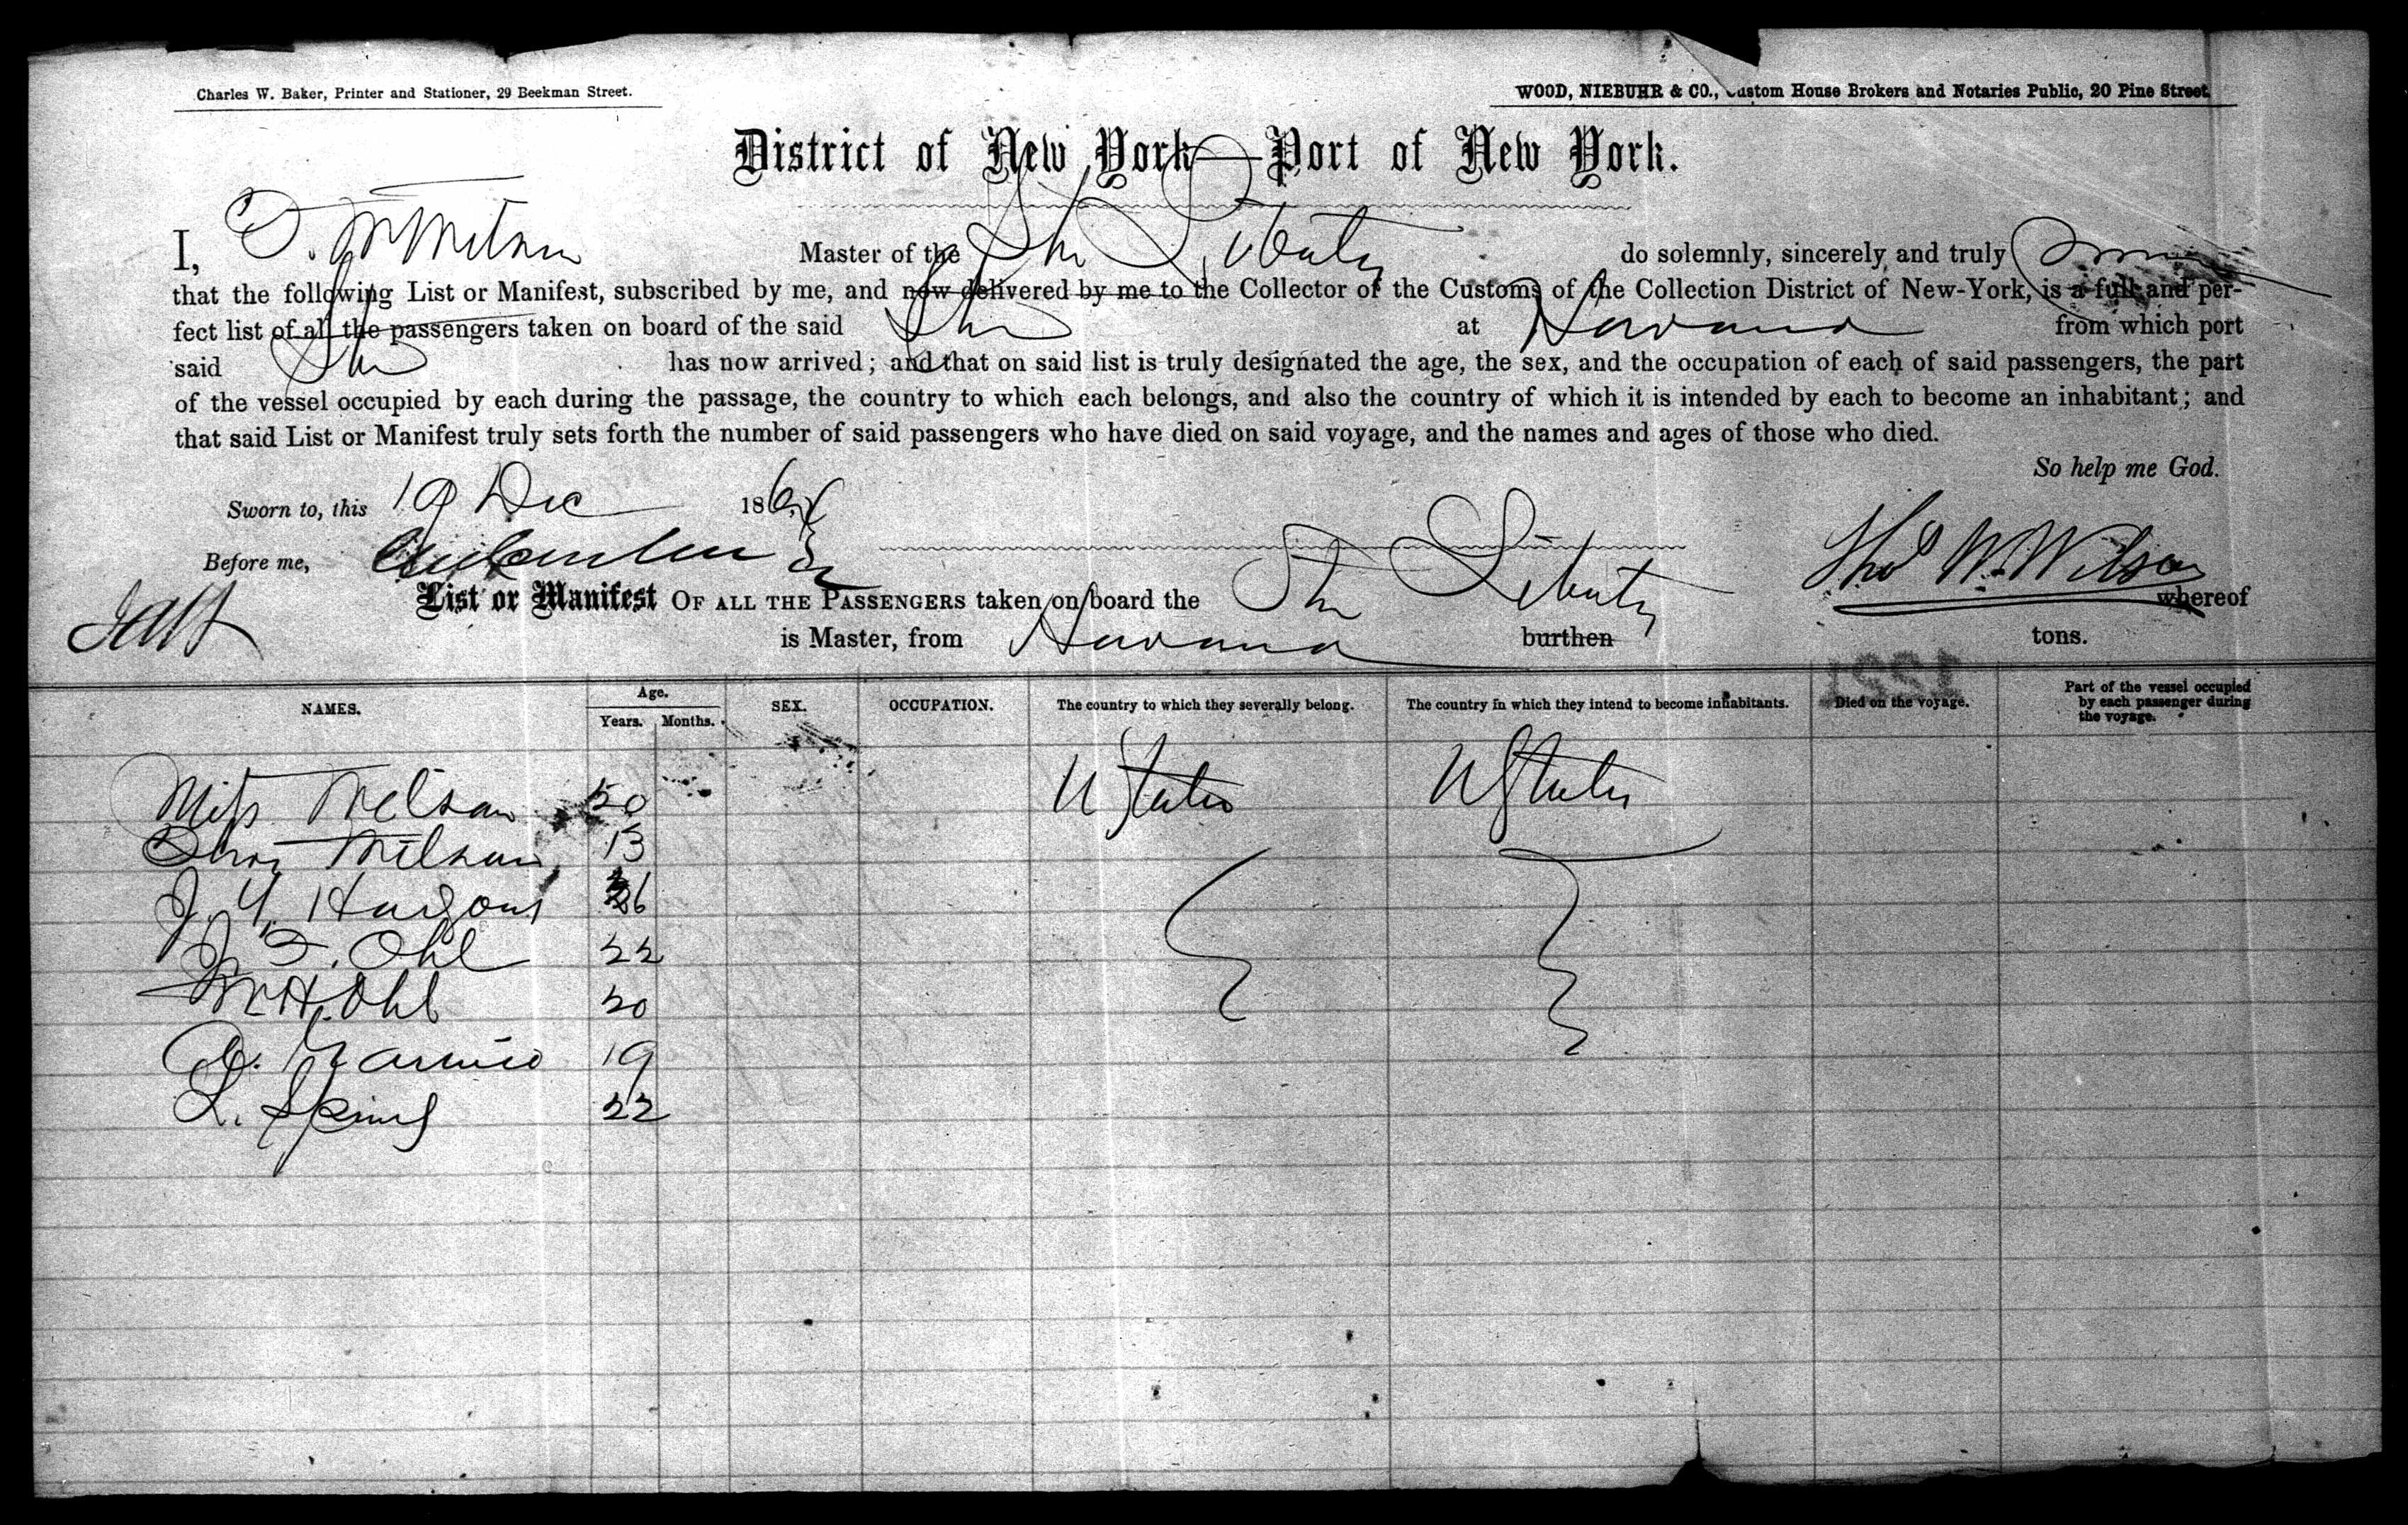 Charles W. Baker, Printer and Stationer, 29 Beekman Street.
WOOD, NIEBUHR & CO., Custom House Brokers and Notaries Public, 20 Pine Street.
District of New York—Port of New York.
I, T. W Wilson Master of the Str Liberty do solemnly, sincerely and truly
that the following List or Manifest, subscribed by me, and now delivered by me to the Collector of the Customs of the Collection District of New-York, is a full and per-
fect list of all the passengers taken on board of the said Str at Havana from which port
said Str has now arrived; and that on said list is truly designated the age, the sex, and the occupation of each of said passengers, the part
of the vessel occupied by each during the passage, the country to which each belongs, and also the country of which it is intended by each to become an inhabitant; and
that said List or Manifest truly sets forth the number of said passengers who have died on said voyage, and the names and ages of those who died.
So help me God.
Sworn to, this 19 Dec 186
Before me,
Thos W. Wilson
List or Manifest OF ALL THE PASSENGERS taken on board the Str Liberty whereof
is Master, from Havana burthen tons.
NAMES. Age. Years. Months. SEX. OCCUPATION. The country to which they severally belong. The country in which they intend to become inhabitants. Died on the voyage. Part of the vessel occupied by each passenger during the voyage.
Miss Wilson 20 U States U States
Wilson 13
J. Y. Hargous 26
J. F. Ohl 22
W H. Ohl 20
D. 19
L. 22